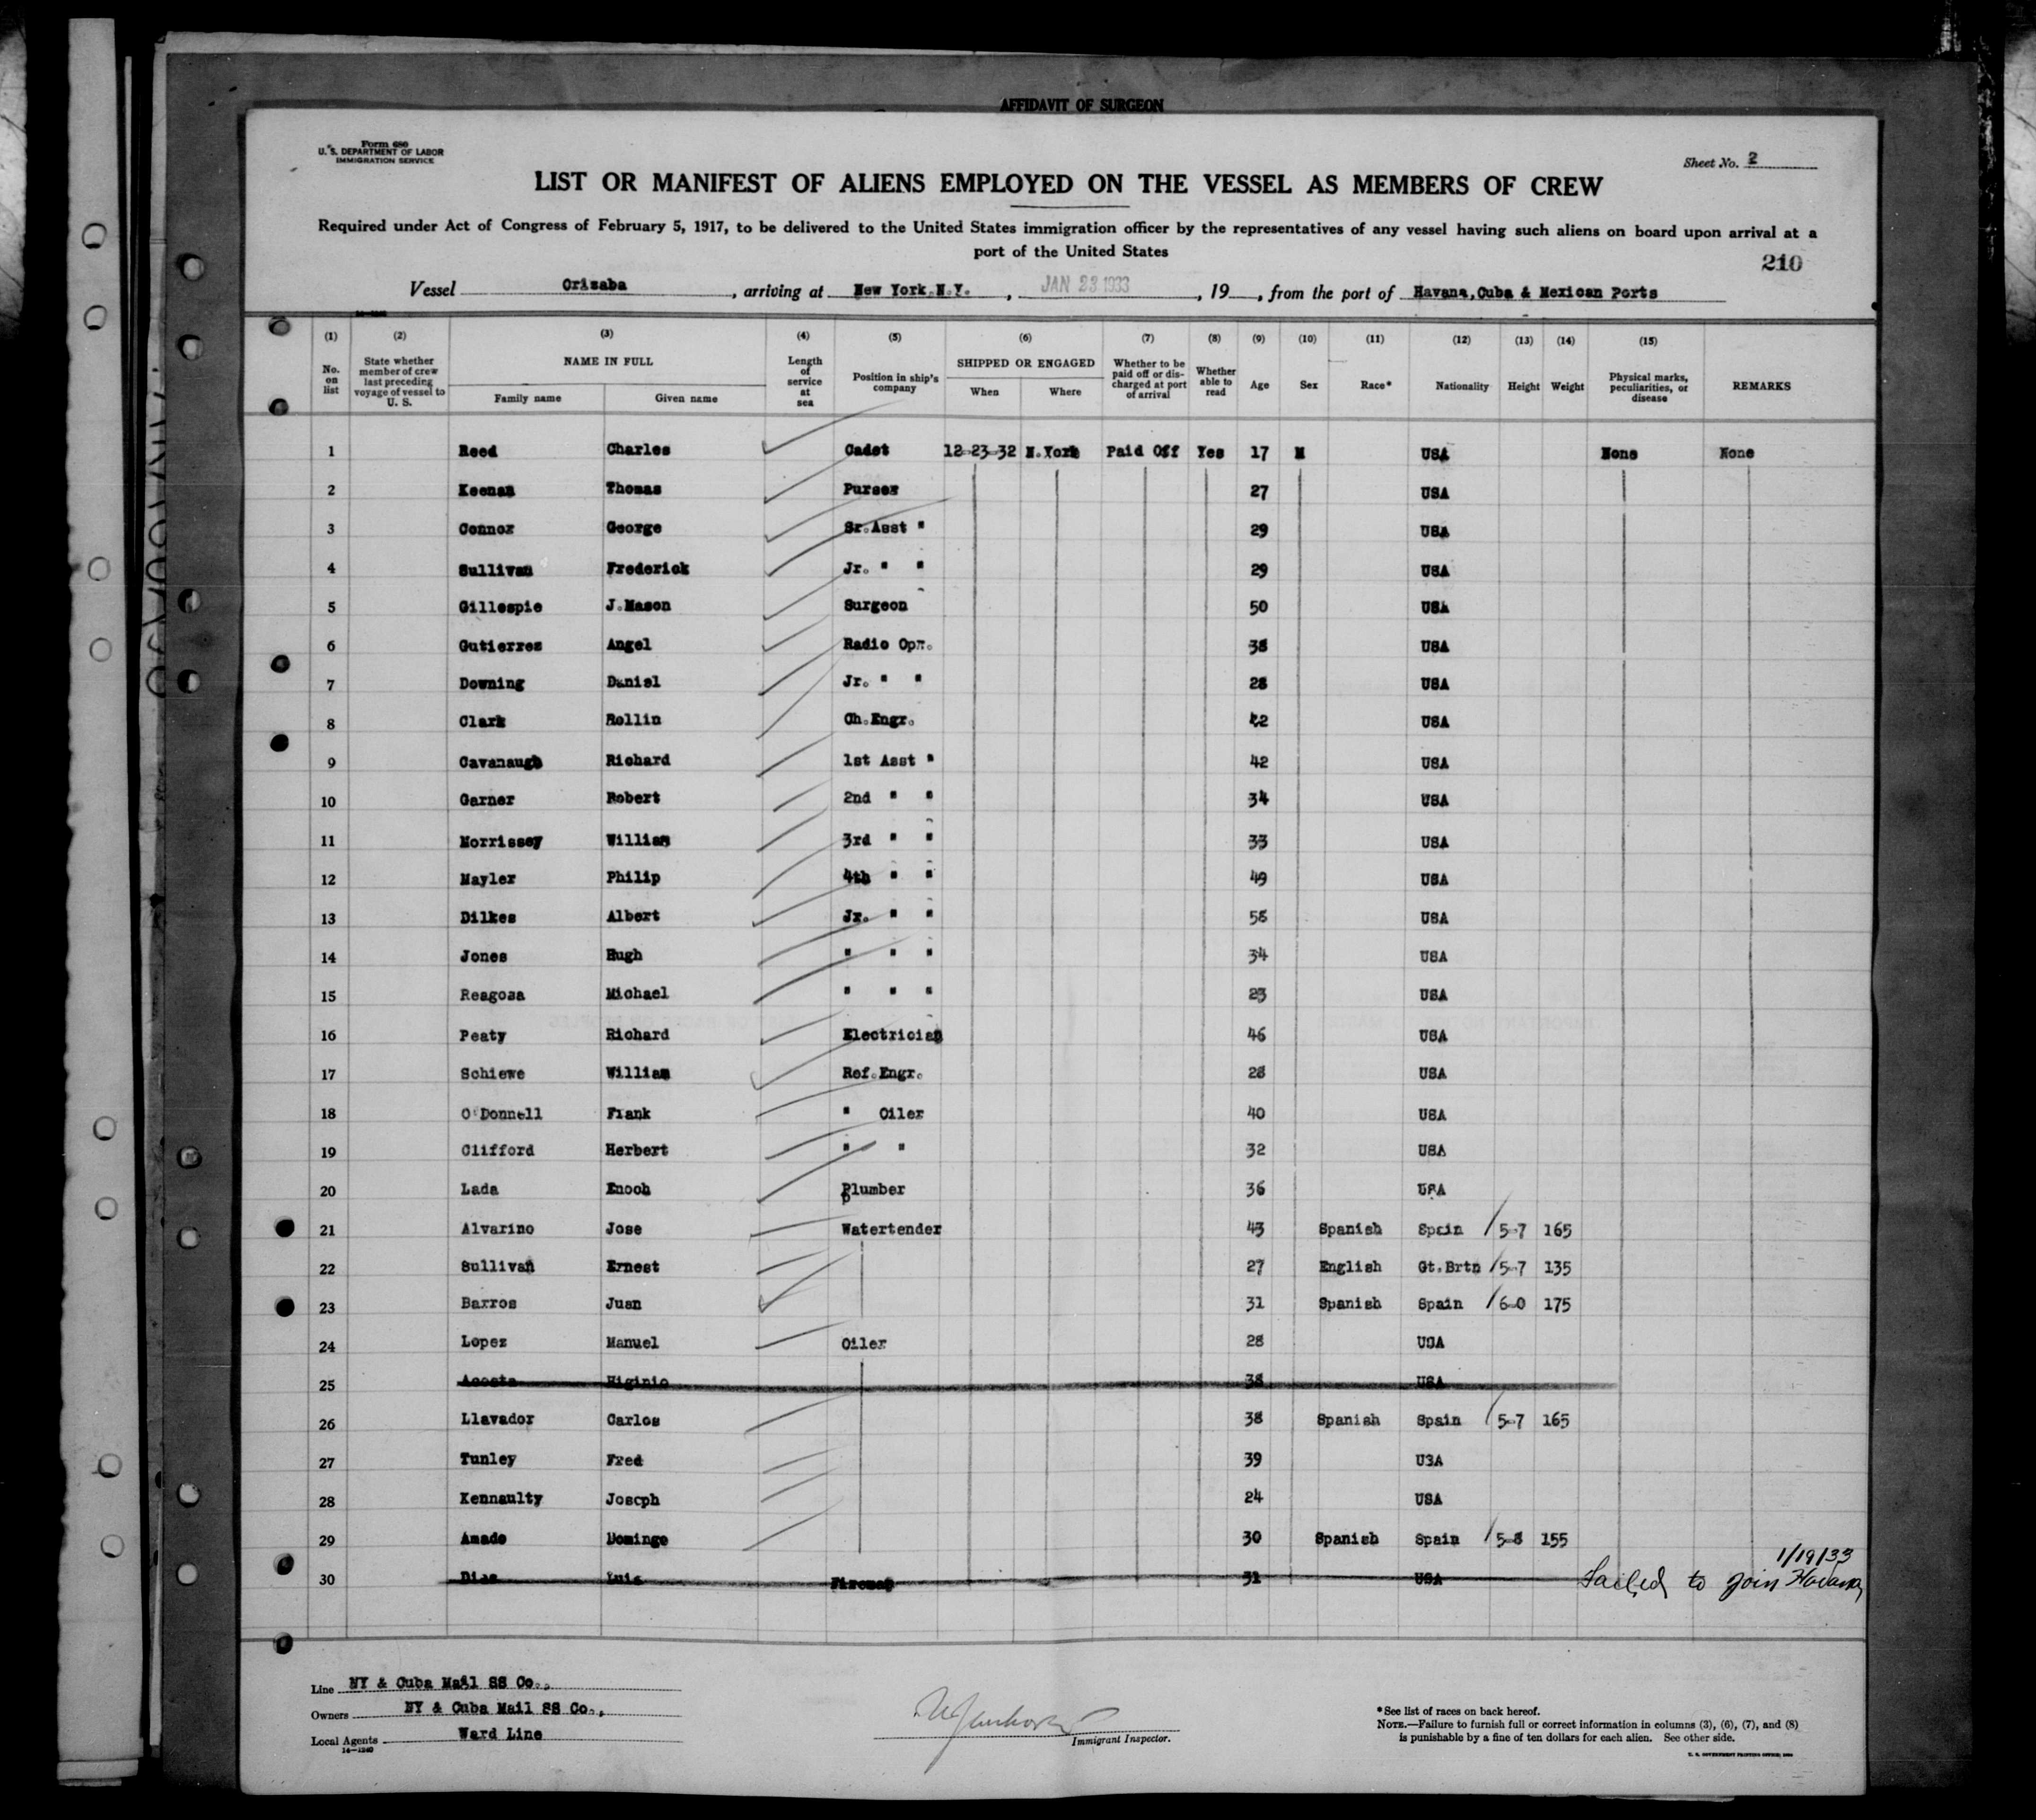 AFFIDAVIT OF SURGEON
Form 680
U. S. DEPARTMENT OF LABOR
IMMIGRATION SERVICE
Sheet No. 2
LIST OR MANIFEST OF ALIENS EMPLOYED ON THE VESSEL AS MEMBERS OF CREW
Required under Act of Congress of February 5, 1917, to be delivered to the United States immigration officer by the representatives of any vessel having such aliens on board upon arrival at a
port of the United States
210
Vessel Orizaba, arriving at New York.N.Y., JAN 23 1933, 19 , from the port of Havana,Cuba & Mexican Ports
(1) (2) (3) (4) (5) (6) (7) (8) (9) (10) (11) (12) (13) (14) (15)
No. on list State whether member of crew last preceding voyage of vessel to U. S. NAME IN FULL Family name Given name Length of service at sea Position in ship's company SHIPPED OR ENGAGED When Where Whether to be paid off or discharged at port of arrival Whether able to read Age Sex Race* Nationality Height Weight Physical marks, peculiarities, or disease REMARKS
1 Reed Charles Cadet 12-23-32 N.York Paid Off Yes 17 M USA None None
2 Keenan Thomas Purser 27 USA
3 Connor George Sr.Asst " 29 USA
4 Sullivan Frederick Jr. " " 29 USA
5 Gillespie J.Mason Surgeon 50 USA
6 Gutierrez Angel Radio Opr. 38 USA
7 Downing Daniel Jr. " " 28 USA
8 Clark Rollin Ch.Engr. 42 USA
9 Cavanaugh Richard 1st Asst " 42 USA
10 Garner Robert 2nd " " 34 USA
11 Morrissey William 3rd " " 33 USA
12 Mayler Philip 4th " " 49 USA
13 Dilkes Albert Jr. " " USA
14 Jones Hugh " " " 34 USA
15 Reagosa Michael " " " 23 USA
16 Peaty Richard Electrician 46 USA
17 Schiewe William Ref.Engr. 28 USA
18 O'Donnell Frank " Oiler 40 USA
19 Clifford Herbert " " 32 USA
20 Lada Enoch Plumber 36 USA
21 Alvarino Jose Watertender 43 Spanish Spain 5-7 165
22 Sullivan Ernest 27 English Gt.Brtn 5-7 135
23 Barros Juan 31 Spanish Spain 6-0 175
24 Lopez Manuel Oiler 28 USA
25 Acosta Higinio 38 USA
26 Llavador Carlos 38 Spanish Spain 5-7 165
27 Tunley Fred 39 USA
28 Kennaulty Joseph 24 USA
29 Amado Domingo 30 Spanish Spain 5-8 155
1/19/33
30 Dias Luis Fireman 31 USA Failed to join Havana
Line NY & Cuba Mail SS Co.,
Owners NY & Cuba Mail SS Co.,
Local Agents Ward Line
14—1240
Immigrant Inspector.
*See list of races on back hereof.
NOTE.—Failure to furnish full or correct information in columns (3), (6), (7), and (8)
is punishable by a fine of ten dollars for each alien. See other side.